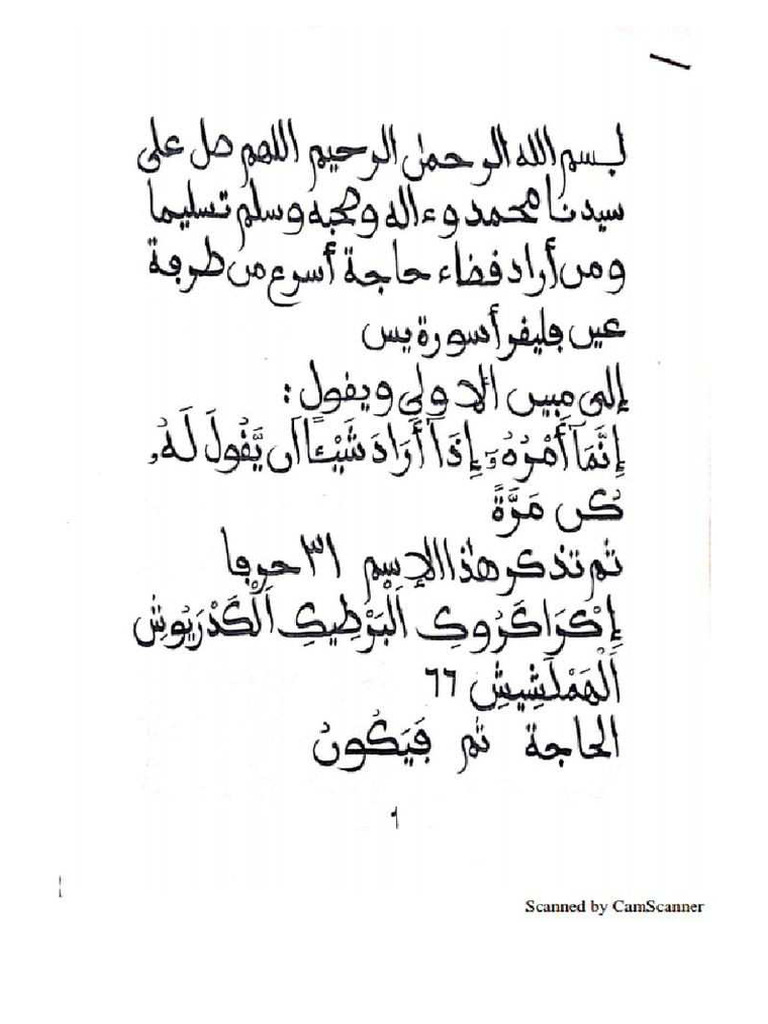 بسم الله الرحمن الرحيم اللهم صل على
سيدنا محمد وءاله وصحبه وسلم تسليما
ومن أراد فضاء حاجة أسرع من طرفة
عين فليقرأ سورة يس
إلى مبين الاولى ويقول :
إِنَّمَآ أَمْرُهُۥٓ إِذَآ أَرَادَ شَيْـًٔا اَن يَّقُولَ لَهُۥ
كُن مَرَّةً
ثم تذكر هٰذا الإسم ٣١ حرفا
إِكْرَاكَرُوكِ اَلْبَرْطِيكِ اَلْكَدْرَيُوشِ
اَلْهَمْلَشِيشِ ٦٦
الحاجة ثم فَيَكُونُ
١
Scanned by CamScanner